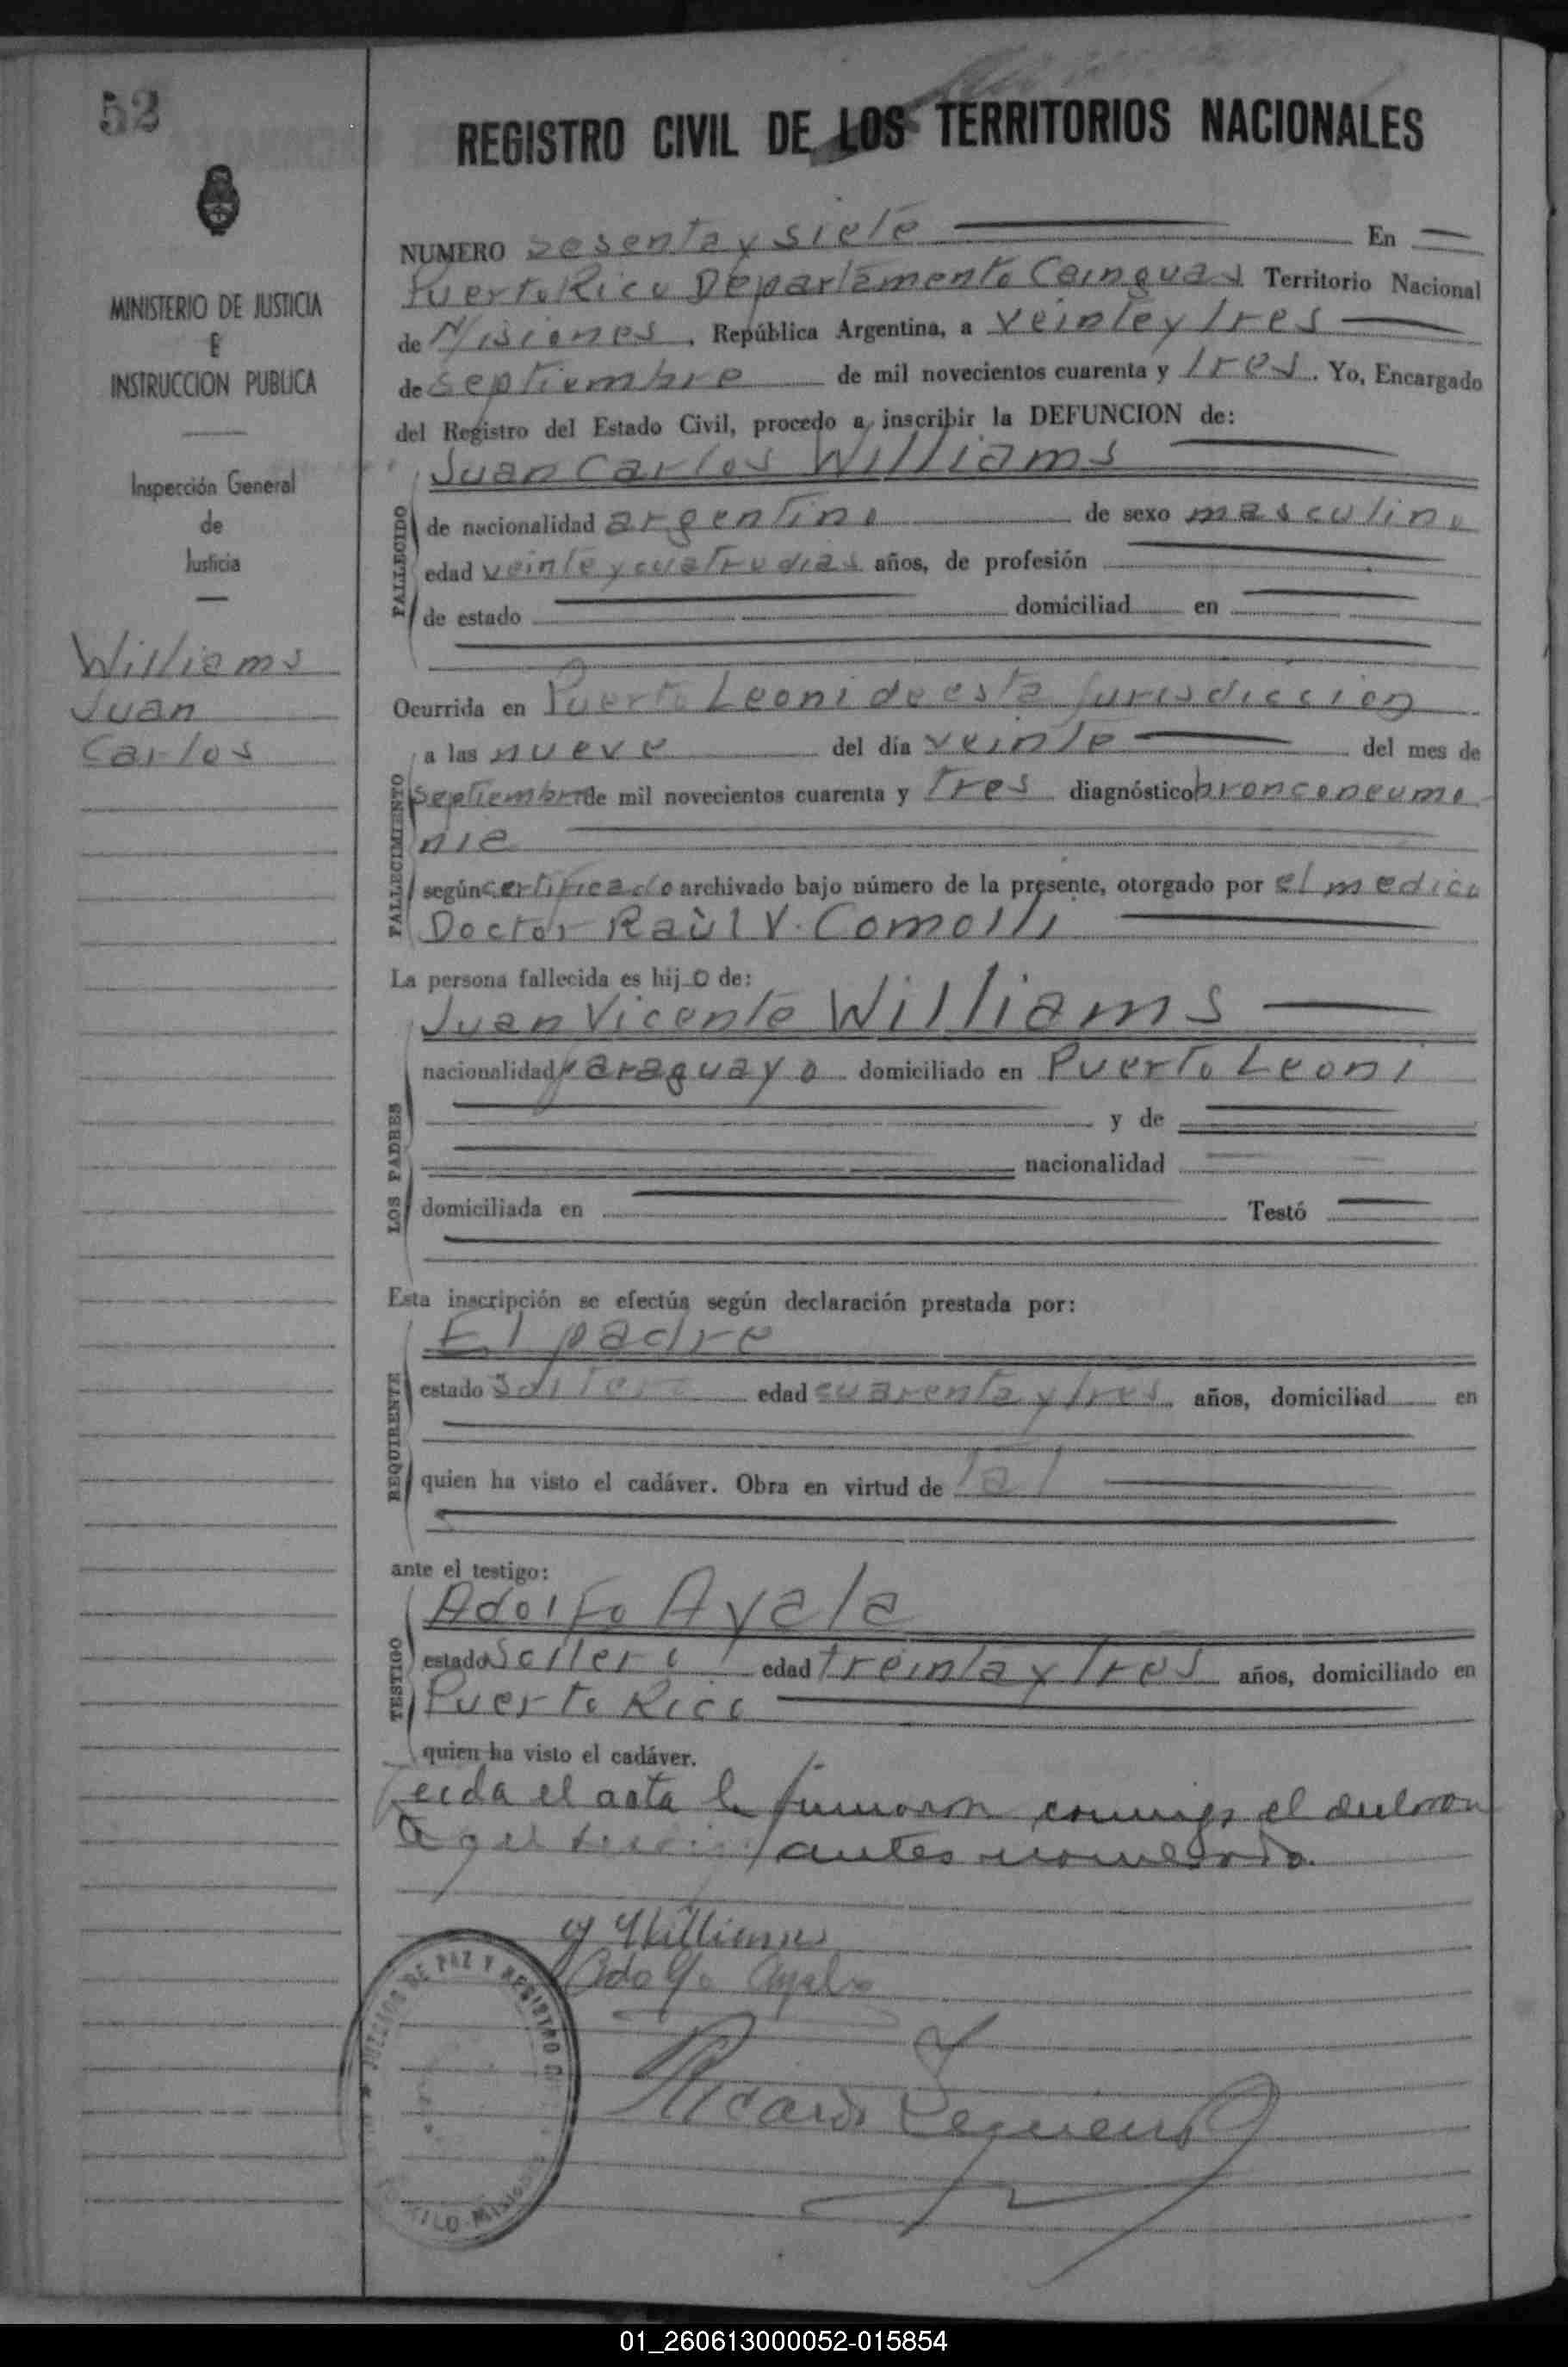 52
MINISTERIO DE JUSTICIA
E
INSTRUCCION PUBLICA
Inspección General
de
Justicia
Williams
Juan
Carlos
REGISTRO CIVIL DE LOS TERRITORIOS NACIONALES
NUMERO sesenta y siete En
Puerto Rico Departamento Cainguas Territorio Nacional
de Misiones, República Argentina, a veinte y tres
de septiembre de mil novecientos cuarenta y tres. Yo, Encargado
del Registro del Estado Civil, procedo a inscribir la DEFUNCION de:
Juan Carlos Williams
FALLECIDO
de nacionalidad argentino de sexo masculino
edad veinte y cuatro dias años, de profesión
de estado domiciliad en
Ocurrida en Puerto Leoni de esta jurisdiccion
a las nueve del día veinte del mes de
FALLECIMIENTO
septiembre de mil novecientos cuarenta y tres diagnóstico bronconeumo
nia
según certificado archivado bajo número de la presente, otorgado por el medico
Doctor Raùl V. Comolli
La persona fallecida es hijo de:
Juan Vicente Williams
nacionalidad paraguayo domiciliado en Puerto Leoni
LOS PADRES
y de
nacionalidad
domiciliada en Testó
Esta inscripción se efectúa según declaración prestada por:
El padre
REQUIRENTE
estado soltero edad cuarenta y tres años, domiciliad en
quien ha visto el cadáver. Obra en virtud de tal
ante el testigo:
Adolfo Ayala
TESTIGO
estado soltero edad treinta y tres años, domiciliado en
Puerto Rico
quien ha visto el cadáver.
Leida el acta la firmaron conmigo el
antes nombrado.
Williams
Adolfo Ayala
Ricardo
JUZGADO DE PAZ Y REGISTRO
01_260613000052-015854